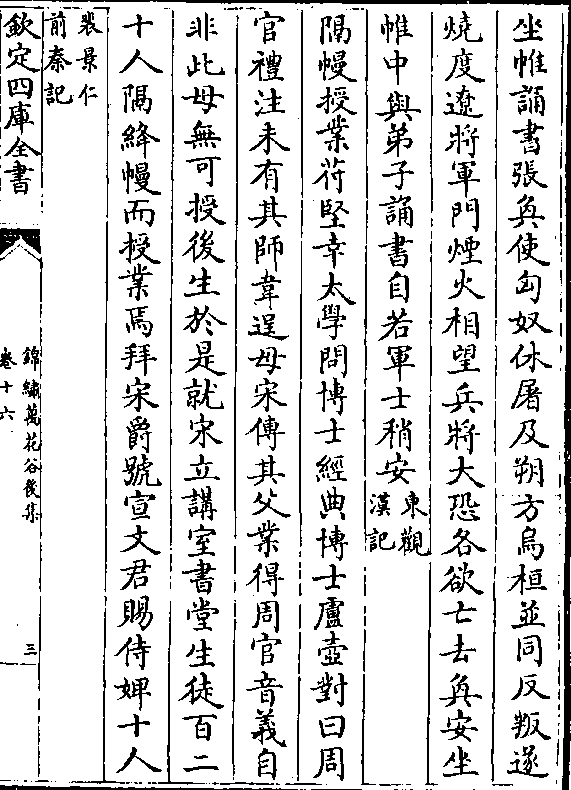 坐帷誦書張奐使匈奴休屠及朔方烏桓並同反叛遂
燒度遼將軍門煙火相望兵將大恐各欲亡去奐安坐
帷中與弟子誦書自若軍士稍安東觀漢記
隔幔授業苻堅幸太學問博士經典博士盧壼對曰周
官禮注未有其師韋逞母宋傳其父業得周官音義自
非此母無可授後生於是就宋立講室書堂生徒百二
十人隔絳幔而授業焉拜宋爵號宣文君賜侍婢十人
裴景仁前秦記
欽定四庫全書
錦繡萬花谷後集
卷十六
三